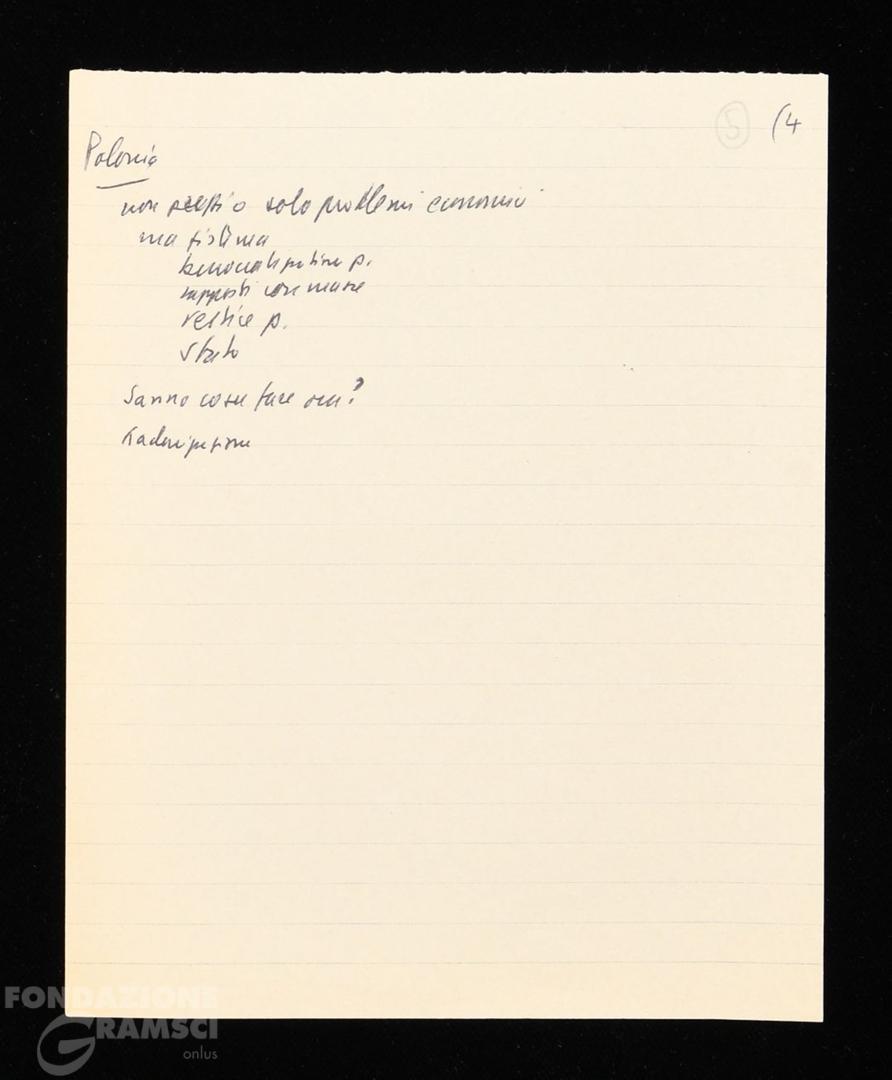 5 (4
Polonia
non solo problemi economici
ma sistema
democratizzazione p.
rapporti con masse
vertice p.
Stato
Sanno cosa fare ora?
Kadarizzazione
FONDAZIONE
GRAMSCI
onlus